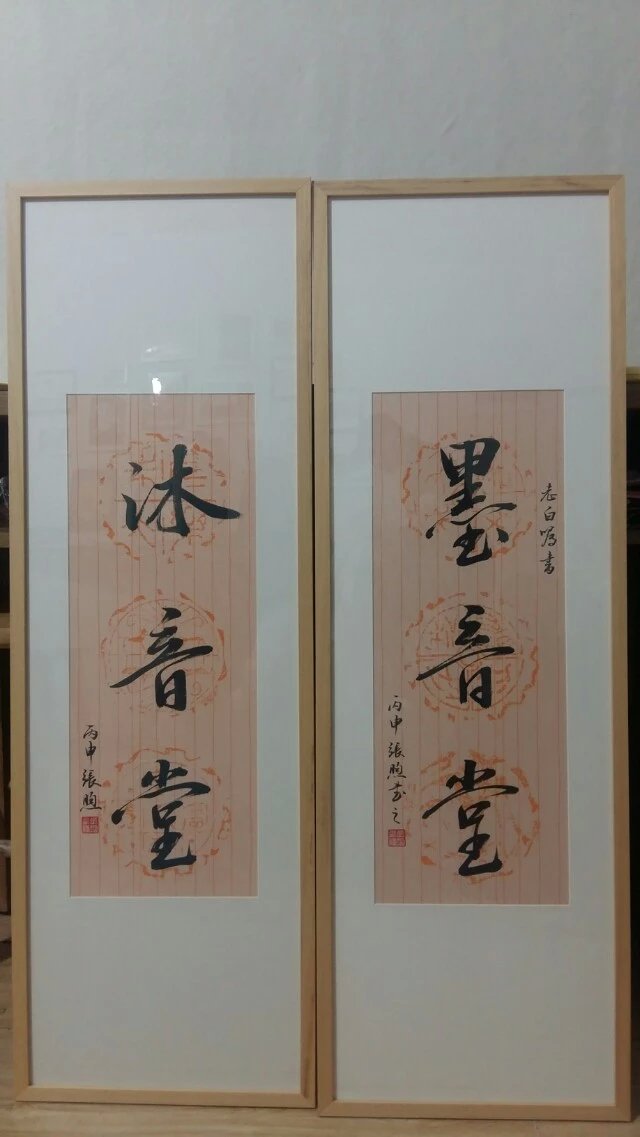 墨音堂
老白嘱書
丙申張煦書之
沐音堂
丙申張煦